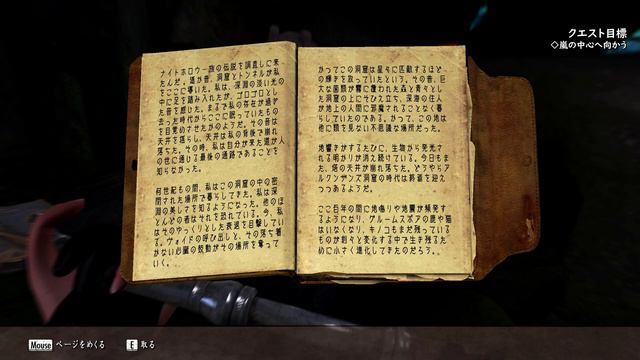 クエスト目標
◇嵐の中心へ向かう
ナイトホロウ一族の伝説を調査しに来
たんだ。道が昔、洞窟とトンネルが私
をここに導いた。私は、深淵の淡い光の
中に足を踏み入れたが、ゴロゴロとし
た音を感じた。まるで私の存在が過ぎ
去った時代からここに眠っていたもの
を目覚めさせたかのようだ。その音は
天井を揺らし、天井は私の背後で崩れ
落ちた。その時、私は自分が来た道が人
の世に通じる最後の通路であることを
知らなかった。
何世紀もの間、私はこの洞窟の中の密
閉された場所で暮らしてきた。私は深
淵の美しさを知るようになった。他のほ
とんどの者はそれを恐れている。今、私
はそのゆっくりとした衰退を目撃してい
る。ヴォイドの呼び出しと、その落ち着
かない心臓の鼓動がその場所を奪って
いく。
かつてこの洞窟は星々に匹敵するほど
の輝きを放っていたという。その昔、巨
大な菌類が霧に覆われた森と青々とし
た洞窟の上にそびえ立ち、深海の住人
が地上の人間に邪魔されることなく暮
らしていたのである。かつて、この地は
他に類を見ない不思議な場所だった。
地響きがするたびに、生物から発光さ
れる明かりが消え続けている。今日もま
た、塔の天井が崩れ落ちた。どうやらア
ルクンデンズ洞窟の時代は終焉を迎え
つつあるようだ。
ここ百年の間に地鳴りや地震が頻発す
るようになり、グルームズホアの鹿や猫
はいなくなり、キノコもまだ残っている
ものが刻々と変化する中で生き残るた
めに小さく進化してきたのだろう。。
Mouse ページをめくる
E 取る